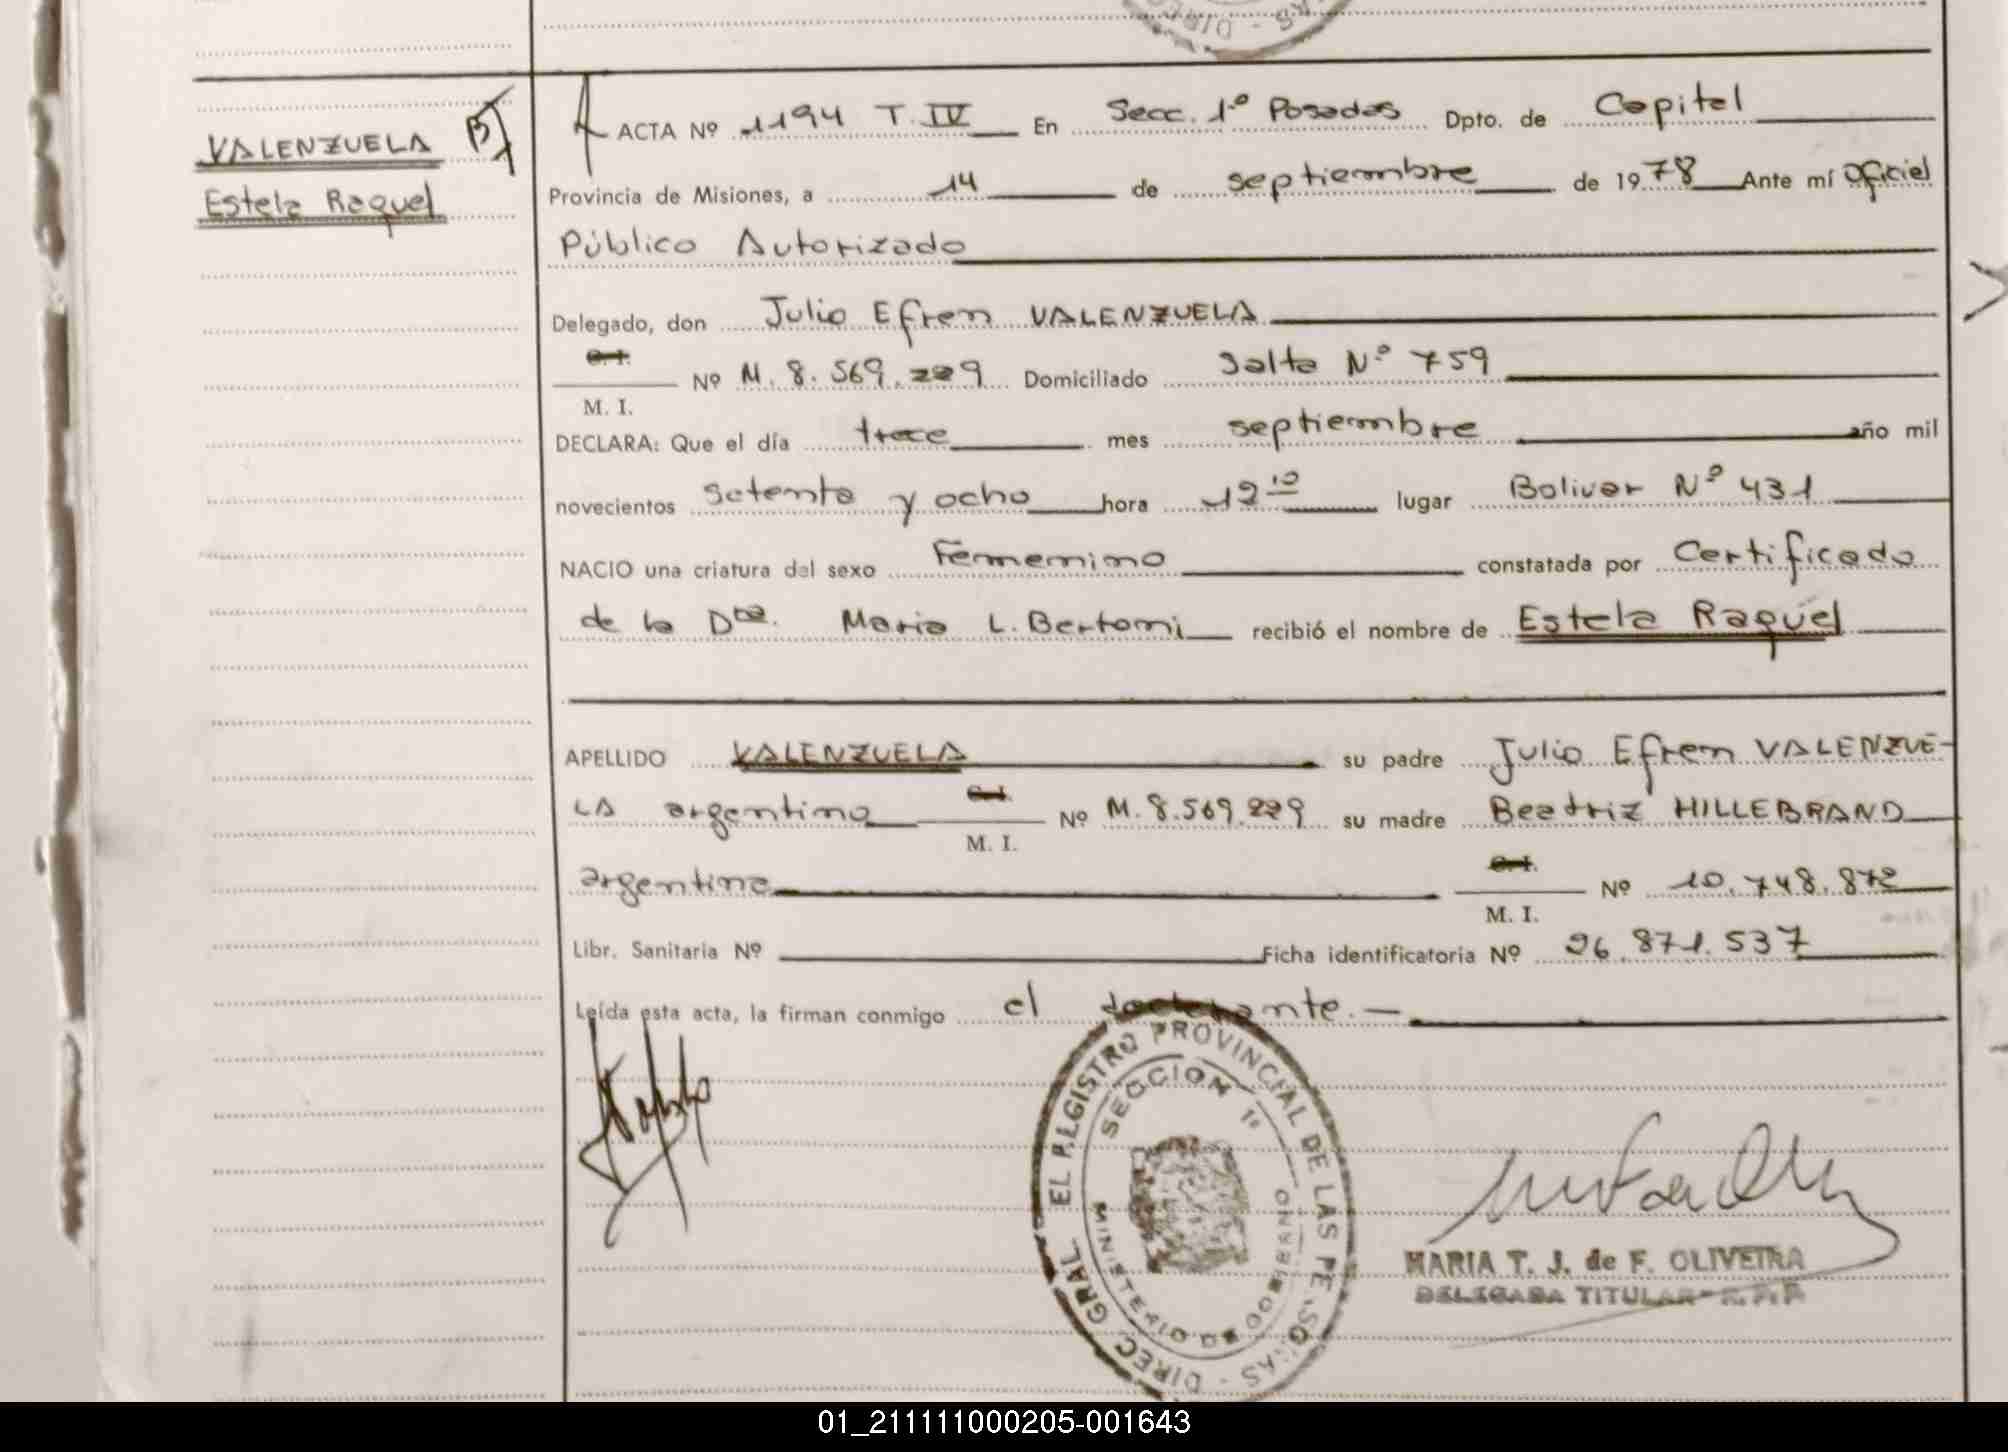 DIREC - AS
VALENZUELA
Estela Raquel
ACTA Nº 1194 T. IV En Secc. 1º Posadas Dpto. de Capital
Provincia de Misiones, a 14 de septiembre de 1978 Ante mí Oficial
Público Autorizado
Delegado, don Julio Efren VALENZUELA
C. I.
M. I. Nº M. 8. 569. 229 Domiciliado Salta Nº 759
DECLARA: Que el día trece mes septiembre año mil
novecientos setenta y ocho hora 12 10 lugar Bolivar Nº 431
NACIO una criatura del sexo Femenino constatada por Certificado
de la Dra. Maria L. Bertoni recibió el nombre de Estela Raquel
APELLIDO VALENZUELA su padre Julio Efren VALENZUE-
LA argentino C. I. M. I. Nº M. 8.569.229 su madre Beatriz HILLEBRAND
argentina C. I. M. I. Nº 10. 748. 872
Libr. Sanitaria Nº Ficha identificatoria Nº 26. 871. 537
Leída esta acta, la firman conmigo el declarante. —
DIREC GRAL EL REGISTRO PROVINCIAL DE LAS PERSONAS
SECCION 1º
MINISTERIO DE GOBIERNO
MARIA T. J. de F. OLIVEIRA
DELEGADA TITULAR - R.P.P
01_211111000205-001643